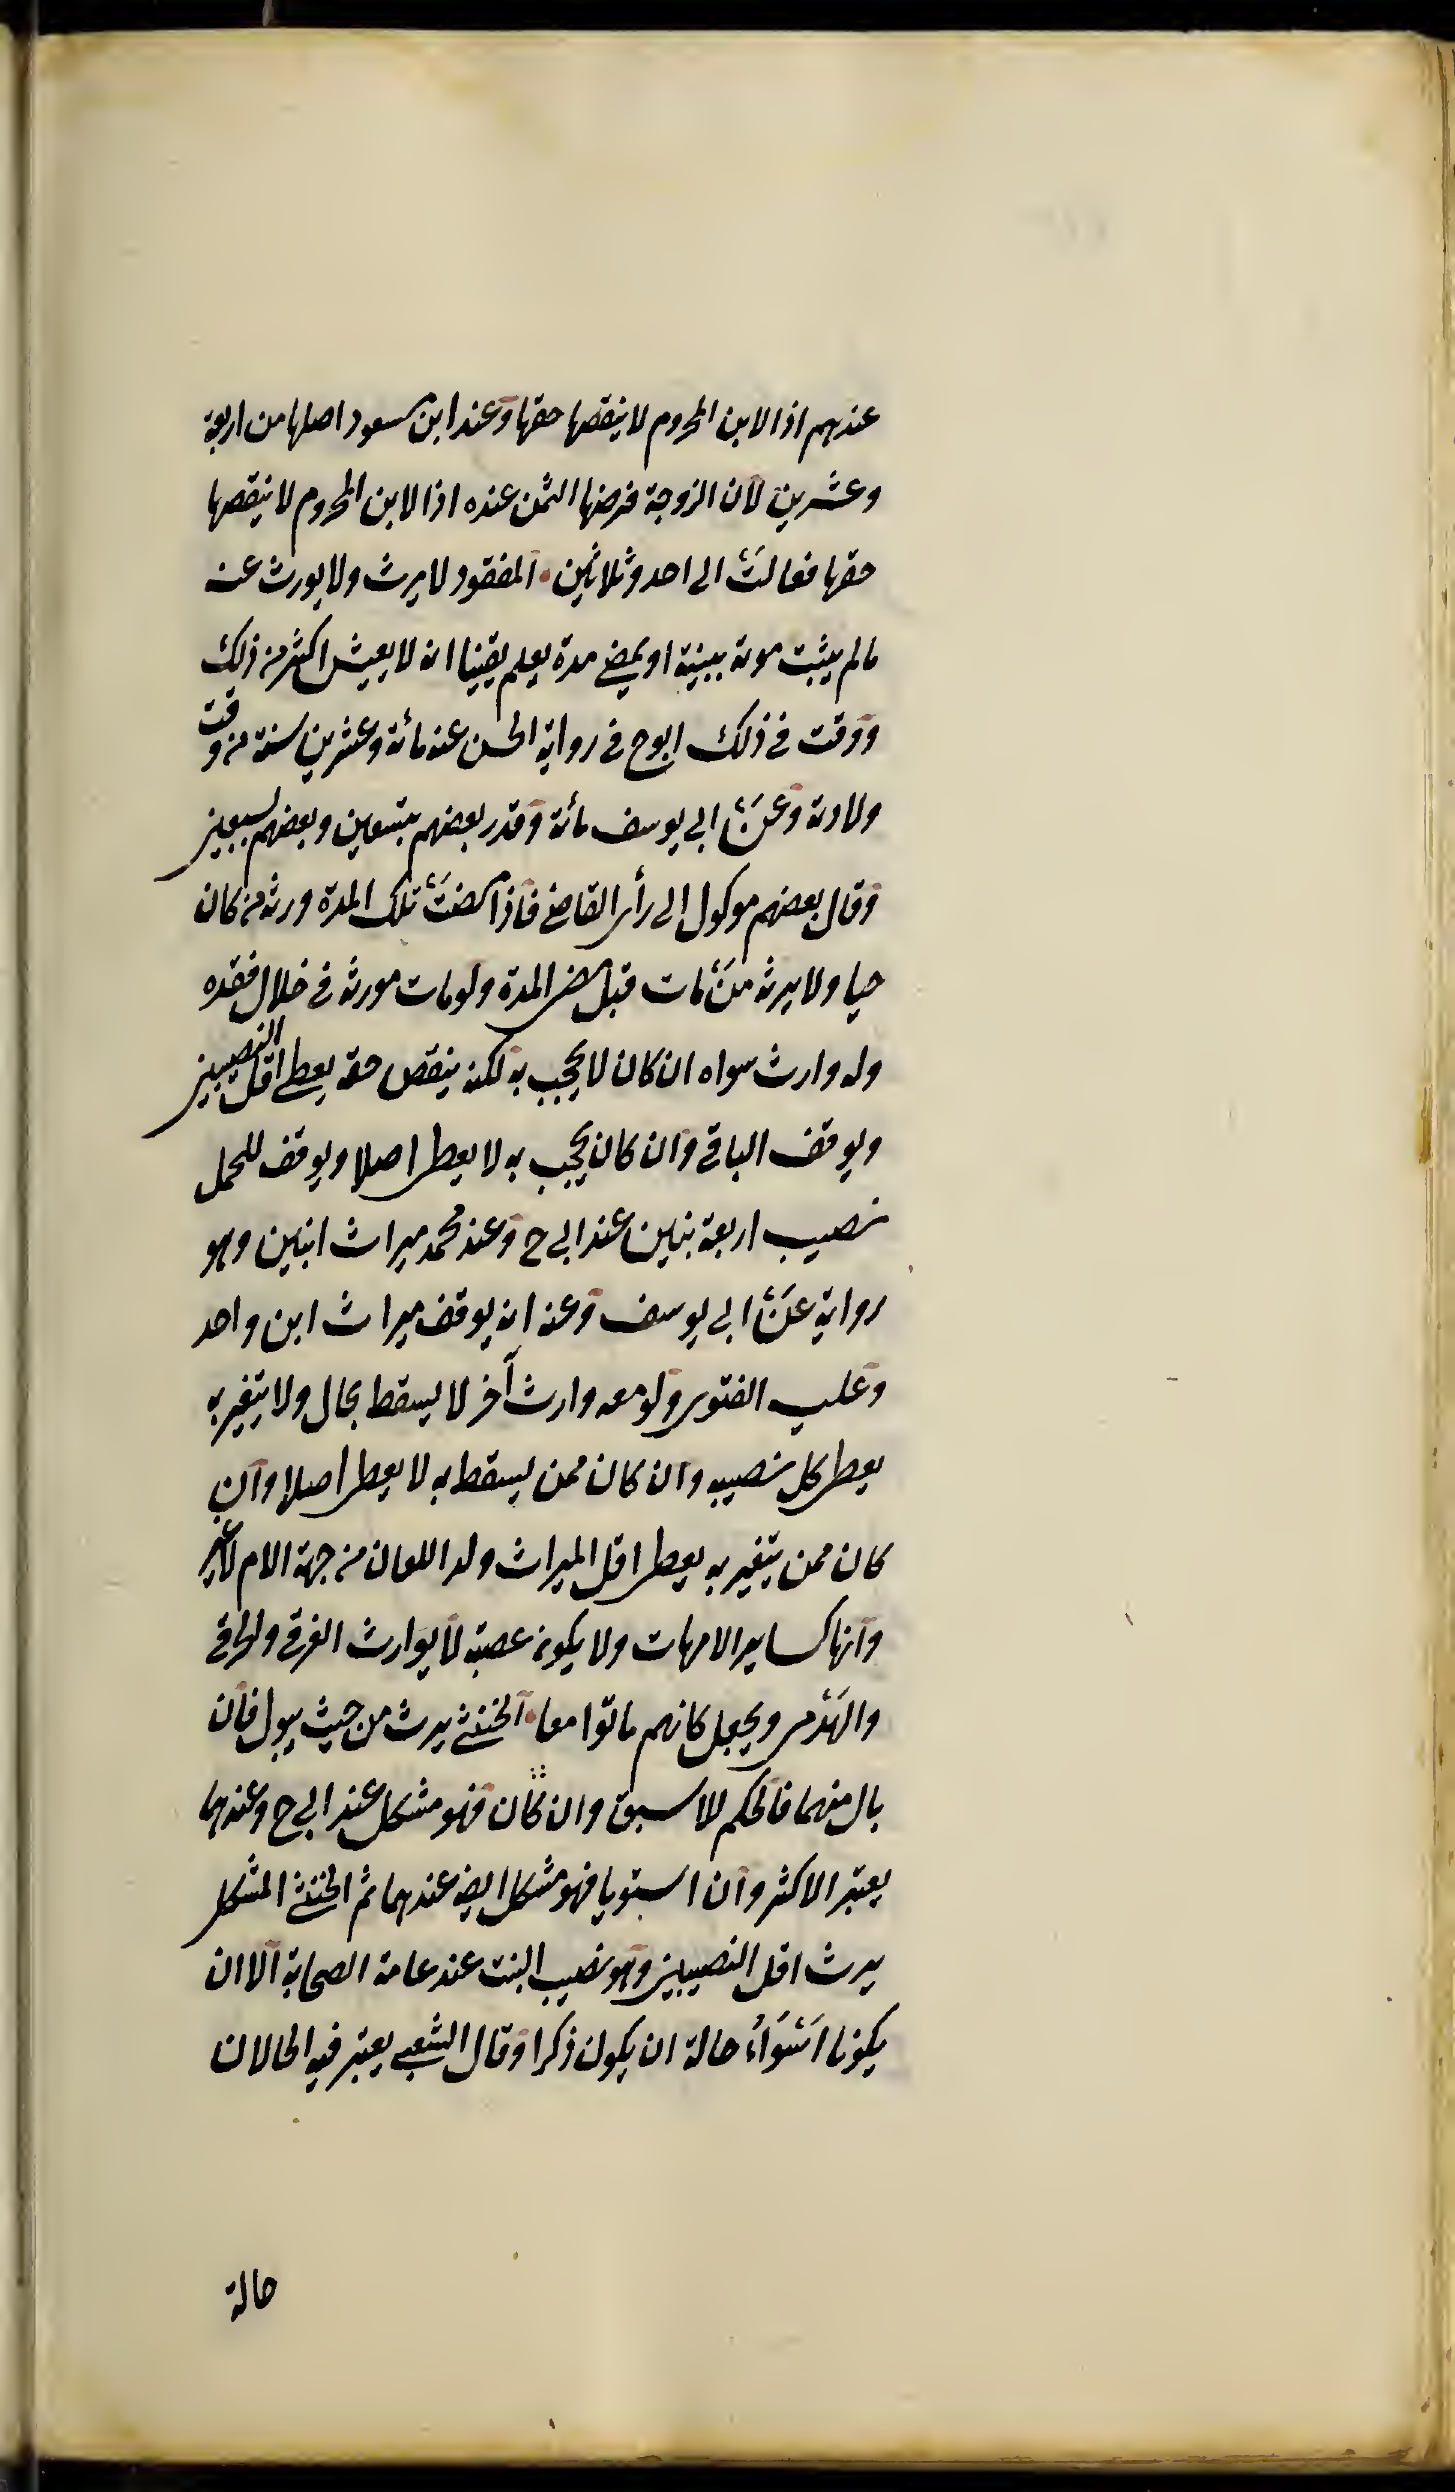 عندهم اذا الابن المحروم لا ينقصها حقها وعند ابن مسعود اصلها من اربعة
وعشرين لان الزوجة فرضها الثمن عنده اذا الابن المحروم لا ينقصها
حقها فعالت الى احد وثلاثين المفقود لا يرث ولا يورث عنه
مالم يثبت موته ببينة او يمضي مدة يعلم يقينا انه لا يعيش اكثر من ذلك
ووقت في ذلك ابوح في رواية الحسن عنه مائة وعشرين سنة من وقت
ولادته وعن ابي يوسف مائة وقدر بعضهم بتسعين وبعضهم بسبعين
وقال بعضهم موكول الى رأى القاضي فاذا مضت تلك المدة ورثه من كان
حيا ولا يرثه من مات قبل مضى المدة ولو مات مورثه في خلال فقده
وله وارث سواه ان كان لا يحجب به لكنه ينقص حقه يعطى اقل النصيبين
ويوقف الباقي وان كان يحجب به لا يعطى اصلا ويوقف للحمل
نصيب اربعة بنين عند ابي ح وعند محمد ميراث ابنين وهو
رواية عن ابي يوسف وعنه انه يوقف ميراث ابن واحد
وعليه الفتوى ولو معه وارث آخر لا يسقط بحال ولا يتغير به
يعطى كل نصيبه وان كان ممن يسقط به لا يعطى اصلا وان
كان ممن يتغير به يعطى اقل الميراث ولد اللعان من جهة الام لا غير
وانها كساير الامهات ولا يكون عصبة لا يوارث الغرقي والحرقي
والهدمى ويجعل كانهم ماتوا معا الخنثى يرث من حيث يبول فان
بال منهما فالحكم للاسبق وان كان فهو مشكل عند ابي ح وعندهما
يعتبر الاكثر وان استويا فهو مشكل ايضا عندهما ثم الخنثى المشكل
يرث اقل النصيبين وهو نصيب البنت عند عامة الصحابة الا ان
يكونا اسوأ حالة ان يكون ذكرا وقال الشعبي يعتبر فيه الحالان
حالة